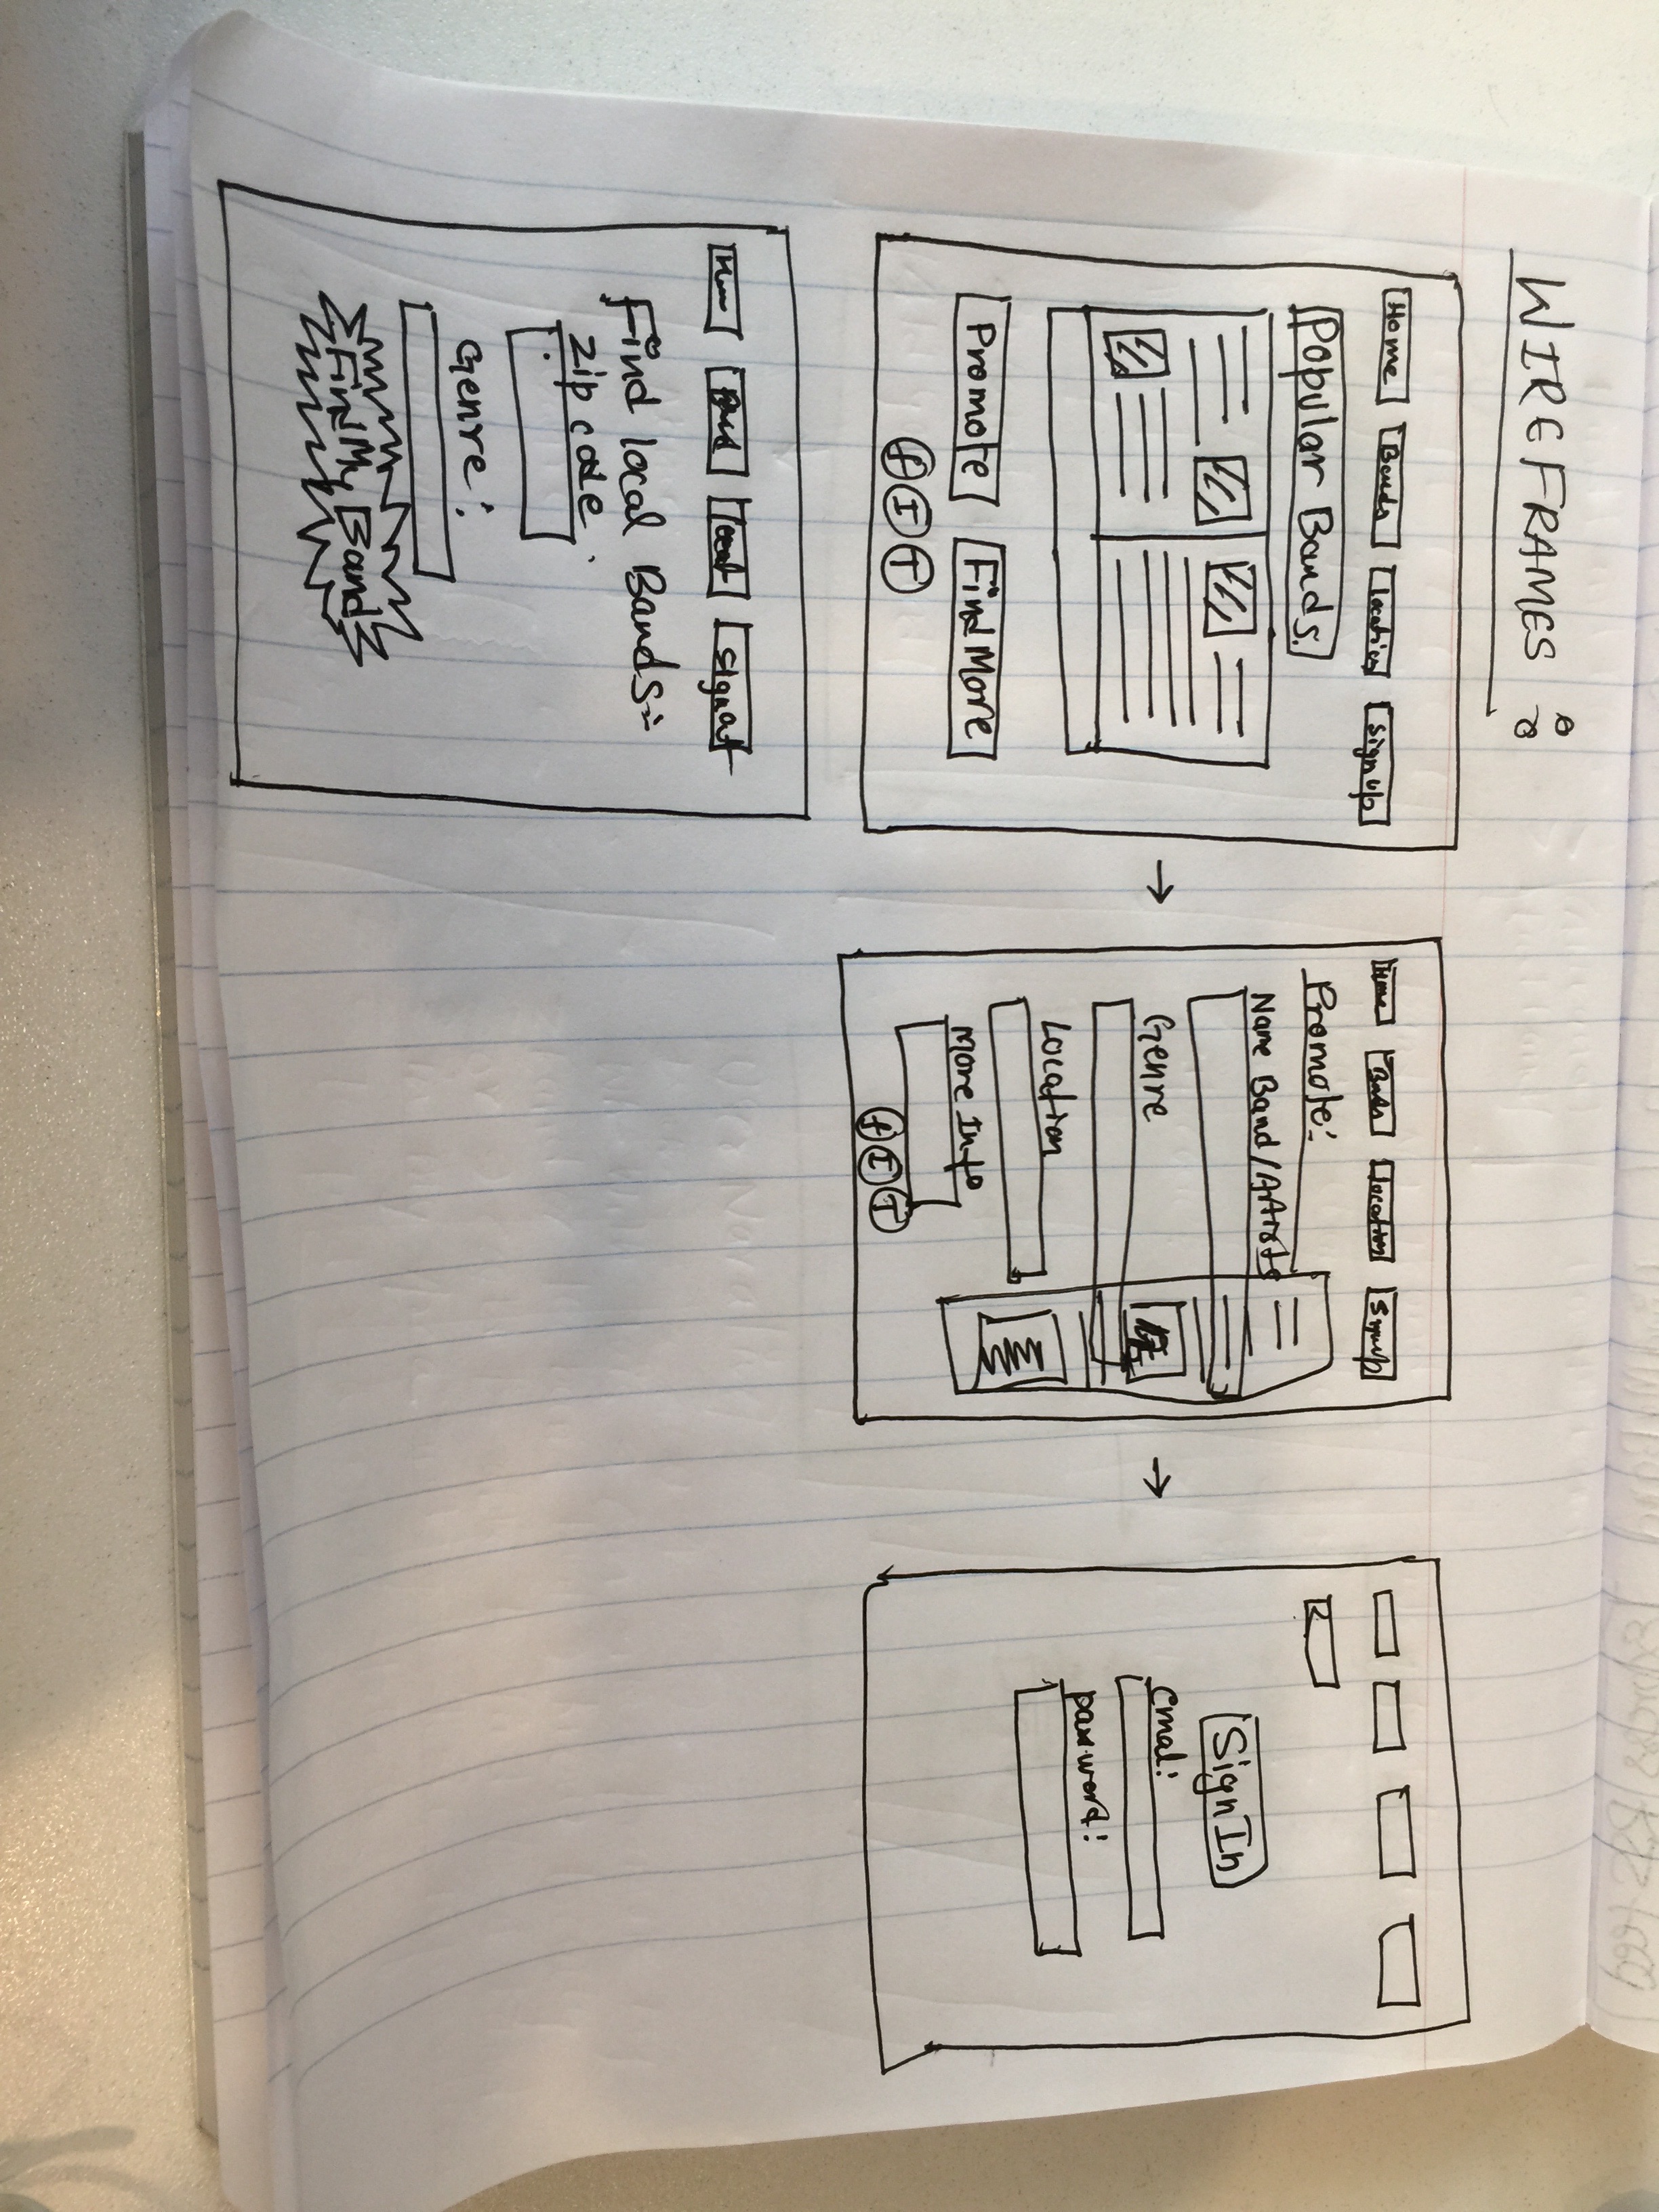 WIREFRAMES:
Home Bands Location Sign up
Popular Bands
Promote Find More
f I T
Home Bands Location Signup
Promote:
Name Band/Artists
Genre
Location
More Info
f I T
Sign In
Email:
password:
Find local Bands:
zip code:
Genre:
Find My Bands